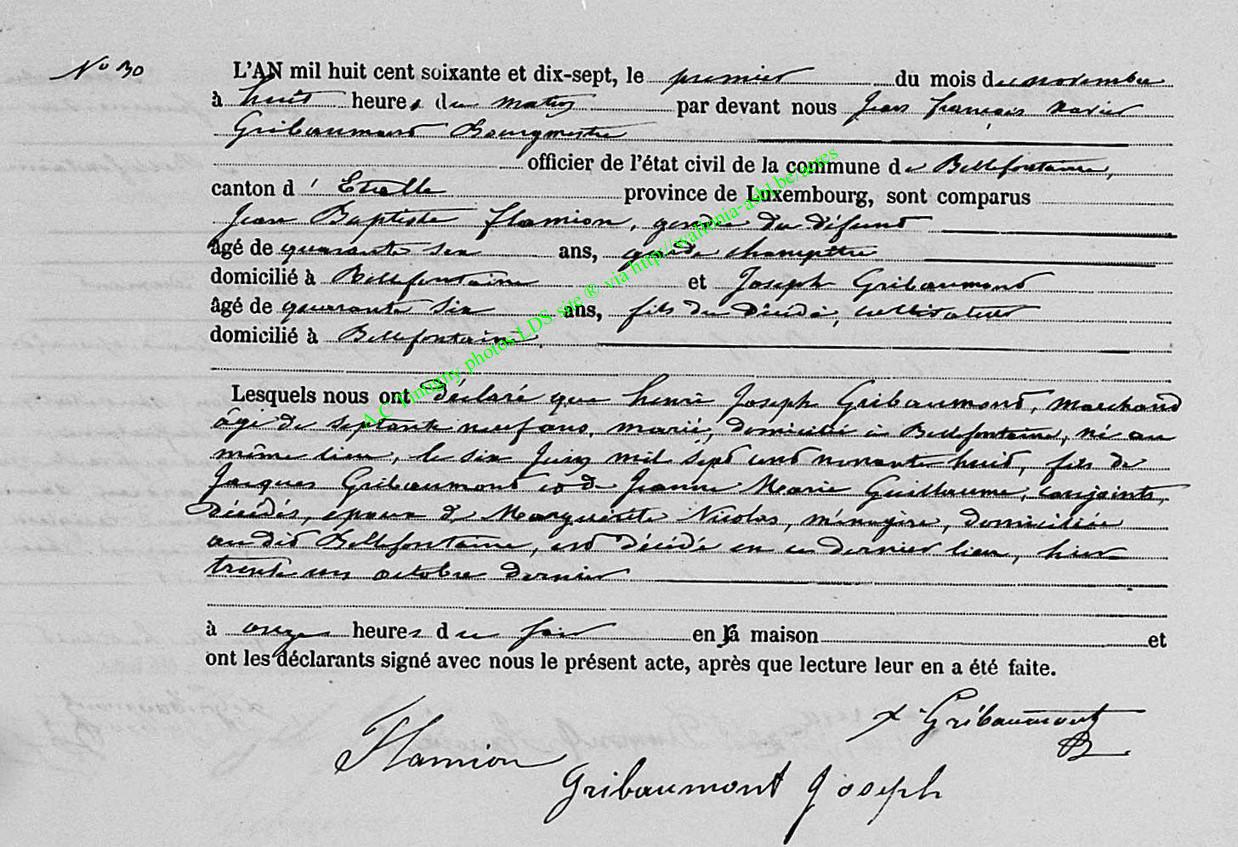 No 30
L'AN mil huit cent soixante et dix-sept, le premier du mois de novembre
à huit heures du matin par devant nous Jean François Xavier
Gribaumont Bourgmestre
officier de l'état civil de la commune de Bellefontaine,
canton d'Etalle province de Luxembourg, sont comparus
Jean Baptiste Flamion, gendre du défunt
âgé de quarante six ans, garde champêtre
domicilié à Bellefontaine et Joseph Gribaumont
âgé de quarante six ans, fils du décédé, cultivateur
domicilié à Bellefontaine
Lesquels nous ont déclaré que henri Joseph Gribaumont, marchand
âgé de septante neuf ans, marié, domicilié à Bellefontaine, né au
même lieu, le six Juin mil sept cent nonante huit, fils de
Jacques Gribaumont et de Jeanne Marie Guillaume, conjoints,
décédés, époux de Marguerite Nicolas, ménagère, domiciliée
audit Bellefontaine, est décédé en ce dernier lieu, hier
trente un octobre dernier
à onze heures du soir en sa maison et
ont les déclarants signé avec nous le présent acte, après que lecture leur en a été faite.
x Gribaumont
Flamion
Gribaumont Joseph
A.C Tintigny photos LDS site ® via http://wallonia-asbl.be/actes